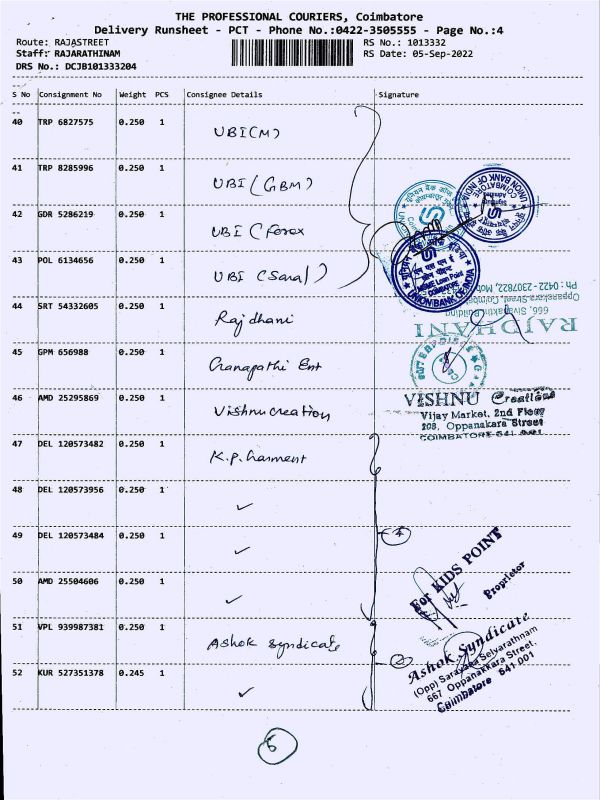 THE PROFESSIONAL COURIERS, Coimbatore
Delivery Runsheet - PCT - Phone No.:0422-3505555 - Page No.:4
Route: RAJASTREET
RS No.: 1013332
Staff: RAJARATHINAM
RS Date: 05-Sep-2022
DRS No.: DCJB101333204
S No Consignment No Weight PCS Consignee Details Signature
40 TRP 6827575 0.250 1 UBI(M)
41 TRP 8285996 0.250 1 UBI (GBM)
42 GDR 5286219 0.250 1 UBI (Forex
43 POL 6134656 0.250 1 UBI (Saral)
44 SRT 54332605 0.250 1 Rajdhani
45 GPM 656988 0.250 1 Ganapathi Ent
46 AMD 25295869 0.250 1 Vishnu creation
47 DEL 120573482 0.250 1 K.P. Garment
48 DEL 120573956 0.250 1 ✓
49 DEL 120573484 0.250 1 ✓
50 AMD 25504606 0.250 1 ✓
51 VPL 939987381 0.250 1 Ashok syndicate
52 KUR 527351378 0.245 1 ✓
UNION BANK OF INDIA
COIMBATORE
यूनियन बैंक ऑफ इंडिया
MSME Loan Point
COIMBATORE
UNION BANK OF INDIA
RAJDHANI
Oppanakara Street, Coimbatore
Ph : 0422 - 2307822
VISHNU Creations
Vijay Market, 2nd Floor
208, Oppanakara Street
COIMBATORE-641 001
4
For KIDS POINT
Proprietor
2
Ashok Syndicate
(Opp) Sarayana Selvarathnam
667 Oppanakkara Street,
Coimbatore 641 001
6